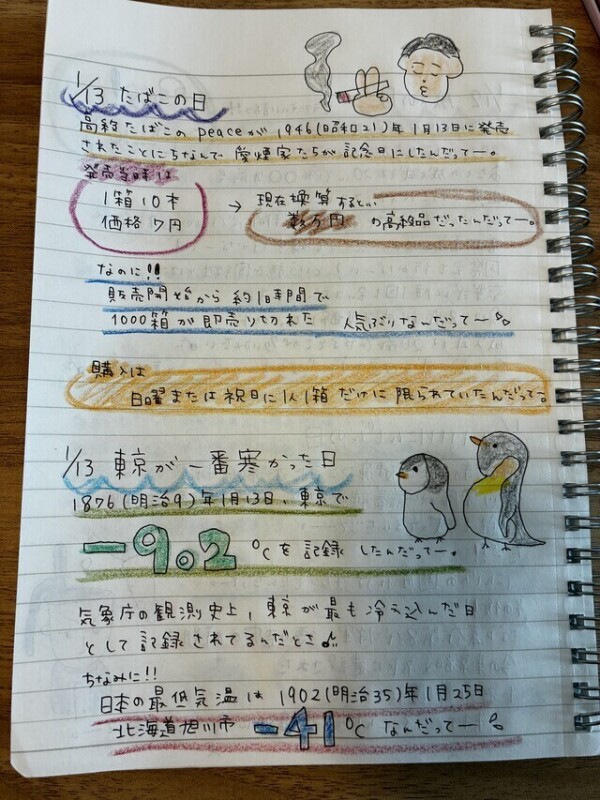 1/13 たばこの日
高級たばこのpeaceが1946(昭和21)年1月13日に発売
されたことにちなんで愛煙家たちが記念日にしたんだってー。
発売当時は
1箱10本
価格7円
→ 現在換算すると、
数万円 の高級品だったんだってー。
なのに!!
販売開始から約1時間で
1000箱が即売り切れた 人気ぶりなんだってー
購入は
日曜または祝日に1人1箱だけに限られていたんだって。
1/13 東京が一番寒かった日
1876(明治9)年1月13日、東京で
-9.2℃を記録したんだってー。
気象庁の観測史上、東京が最も冷え込んだ日
として記録されてるんだとさ
ちなみに!!
日本の最低気温は1902(明治35)年1月25日
北海道旭川市 -41℃ なんだってー